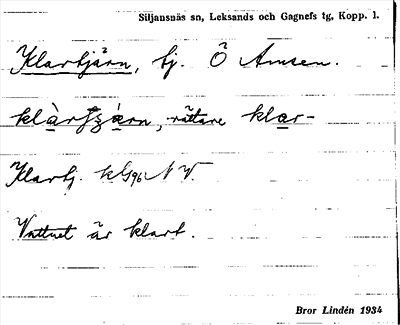 Siljansnäs sn, Leksands och Gagnefs tg, Kopp. l.
Klartjärn, tj. Ö Amsen.
rättare klar-
Klartj. N V.
Vattnet är klart.
Bror Lindén 1934